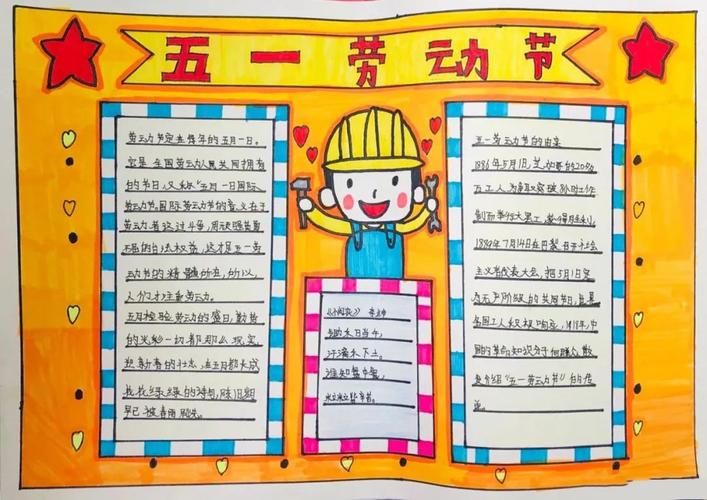 五一劳动节
劳动节定在每年的五月一日。
它是全国劳动人民共同拥有
的节日，又称“五月一日国际
劳动节。国际劳动节的意义在于
劳动者通过斗争，用顽强英勇
不屈的
法权益，这才是五一劳
动节的精髓所在，所以，
人们才注重劳动。
五月检验劳动的盛日，勤劳
的光彩一切都那么现实，
迎新春的壮志，在五月都长成
找找绿绿的诗句，陈旧
早已被春雨
《小悯农》 李绅
锄禾日当午，
汗滴禾下土。
谁知盘中餐，
粒粒皆辛苦。
五一劳动节的由来
1886年5月1日，芝加哥的20多
万工人为争取实
小时工作
制而举行大罢工，
1889年7月14日在巴黎召开社会
主义者代表大会，把5月1日定
为无产阶级的共同节日，
各国工人积极响应，1918年，中
国的革命知识分子
群众散
发介绍“五一劳动节”的传
单。